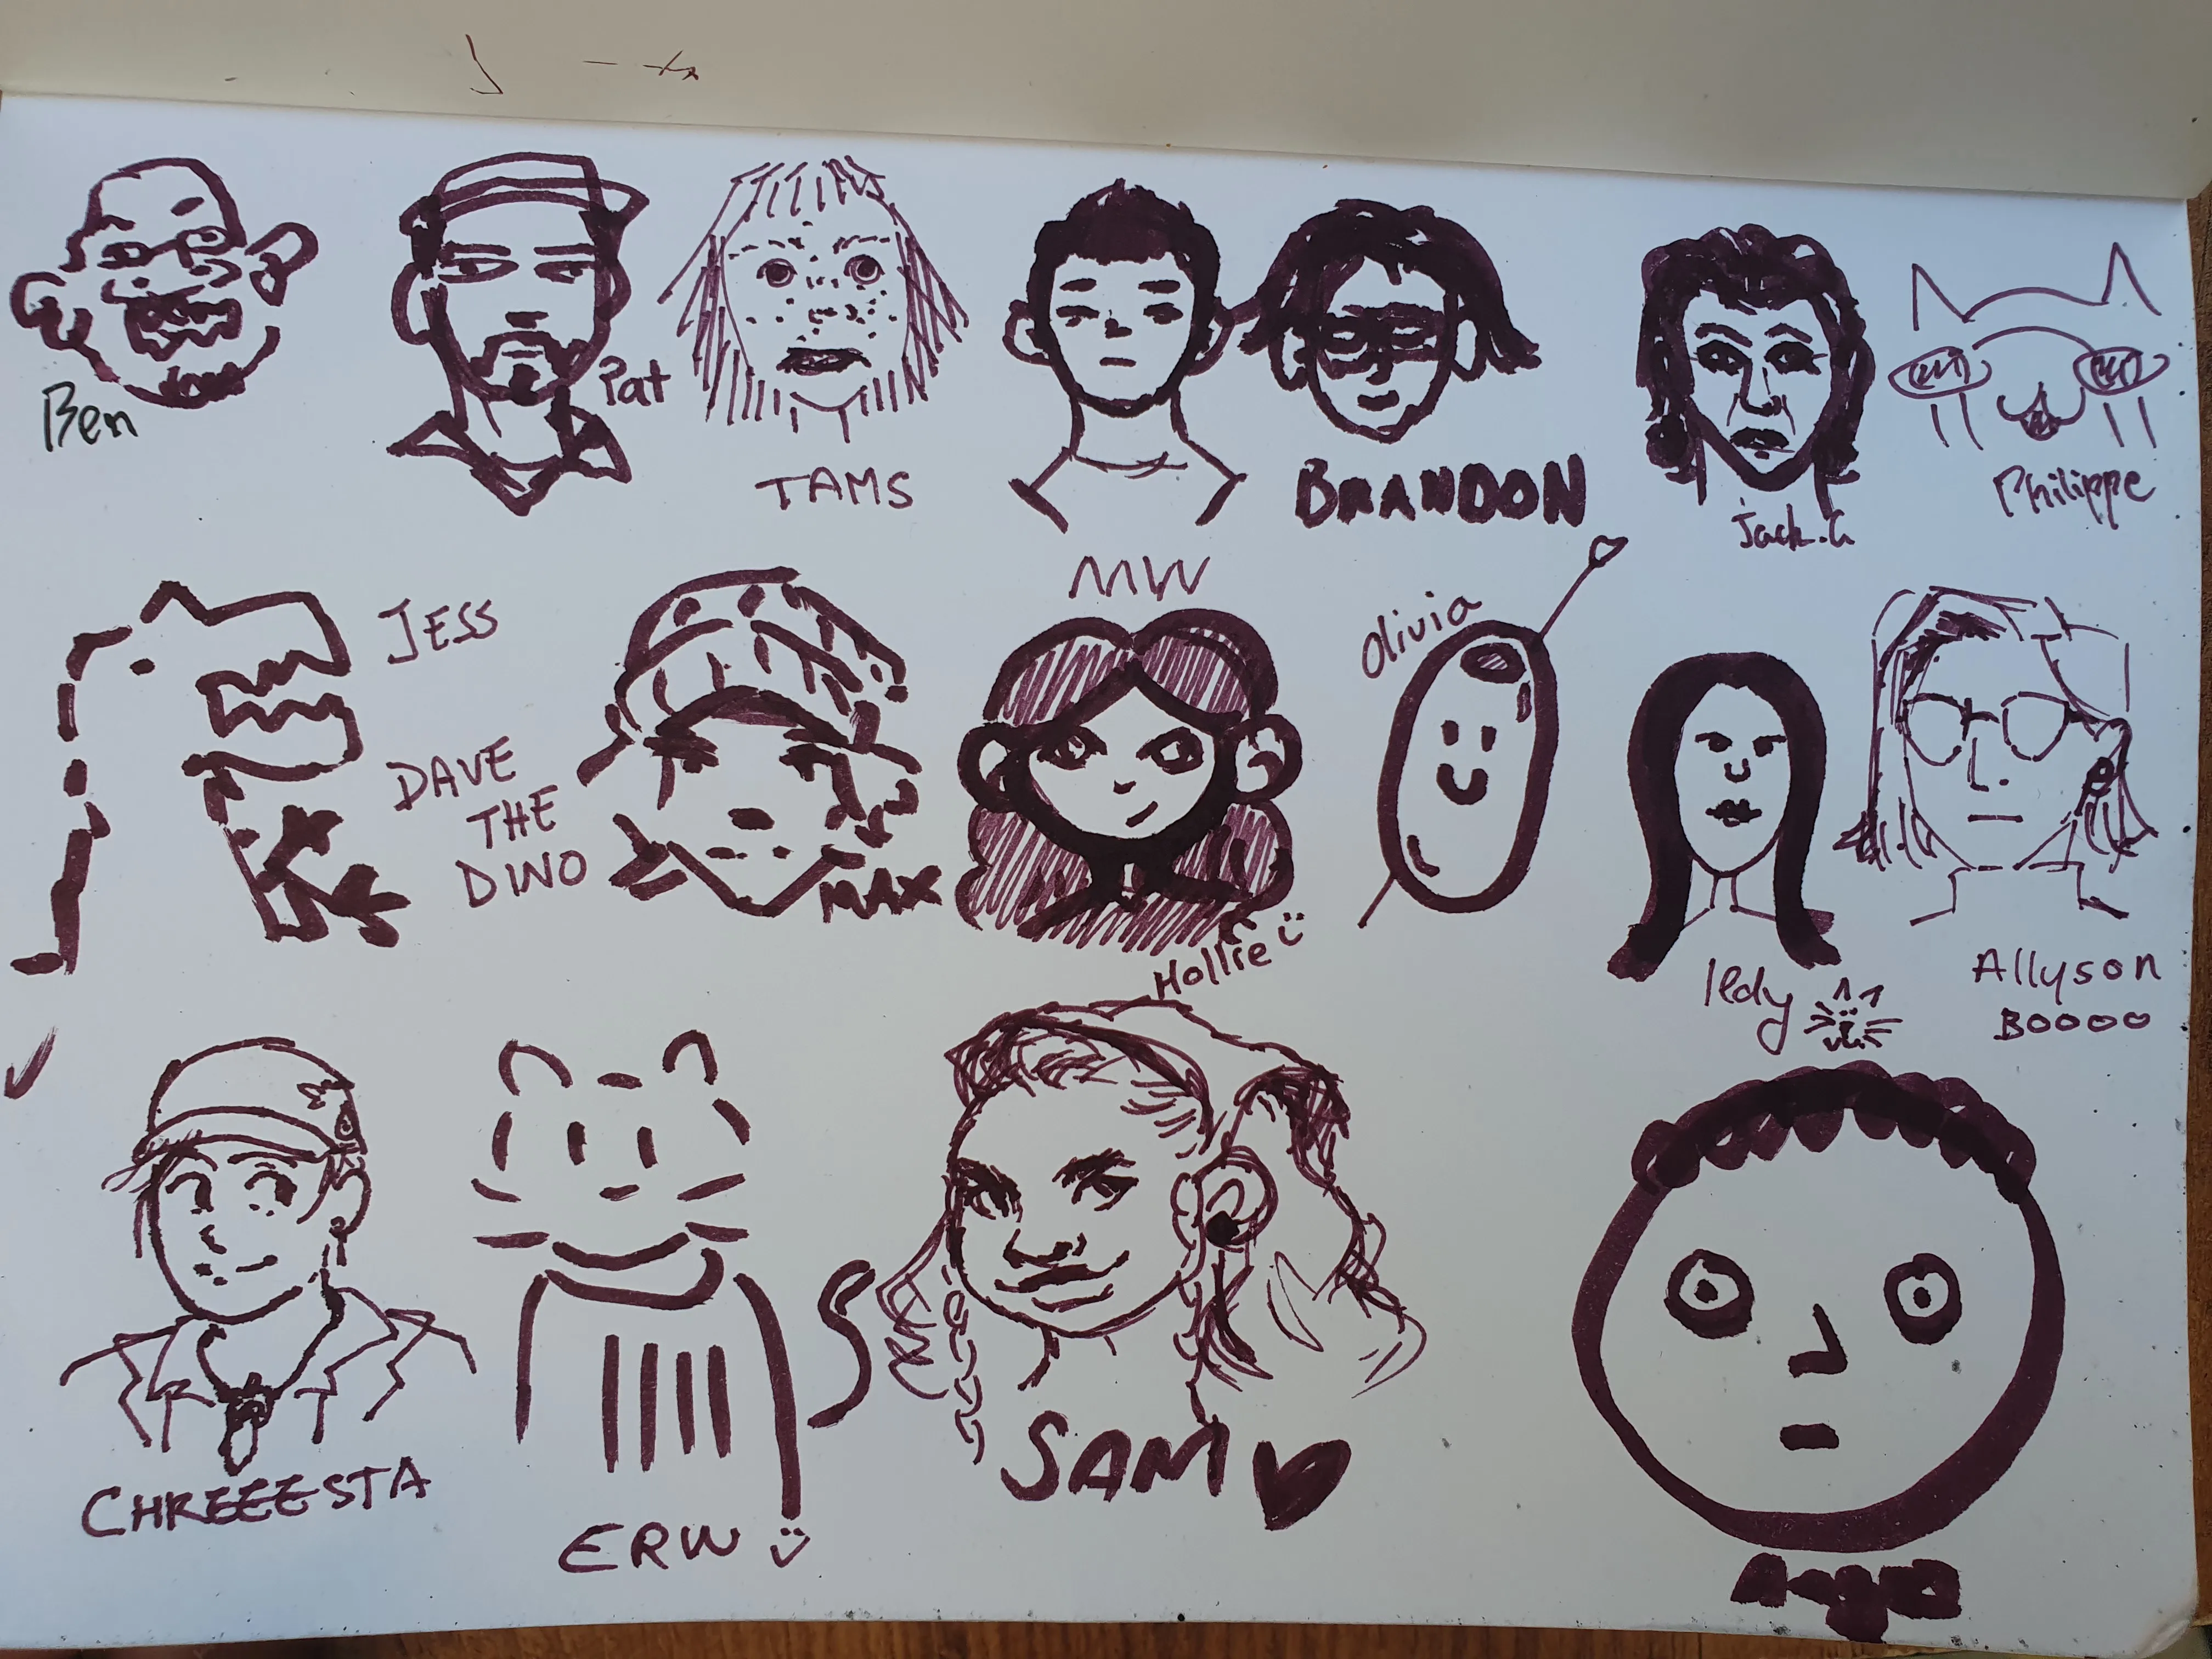 Ben
Pat
TAMS
BRANDON
Jack.G
Philippe
JESS
DAVE
THE
DINO
MAX
MW
Hollie
Olivia
Ildy
Allyson
BOOOO
CHREEESTA
ERW
SAM